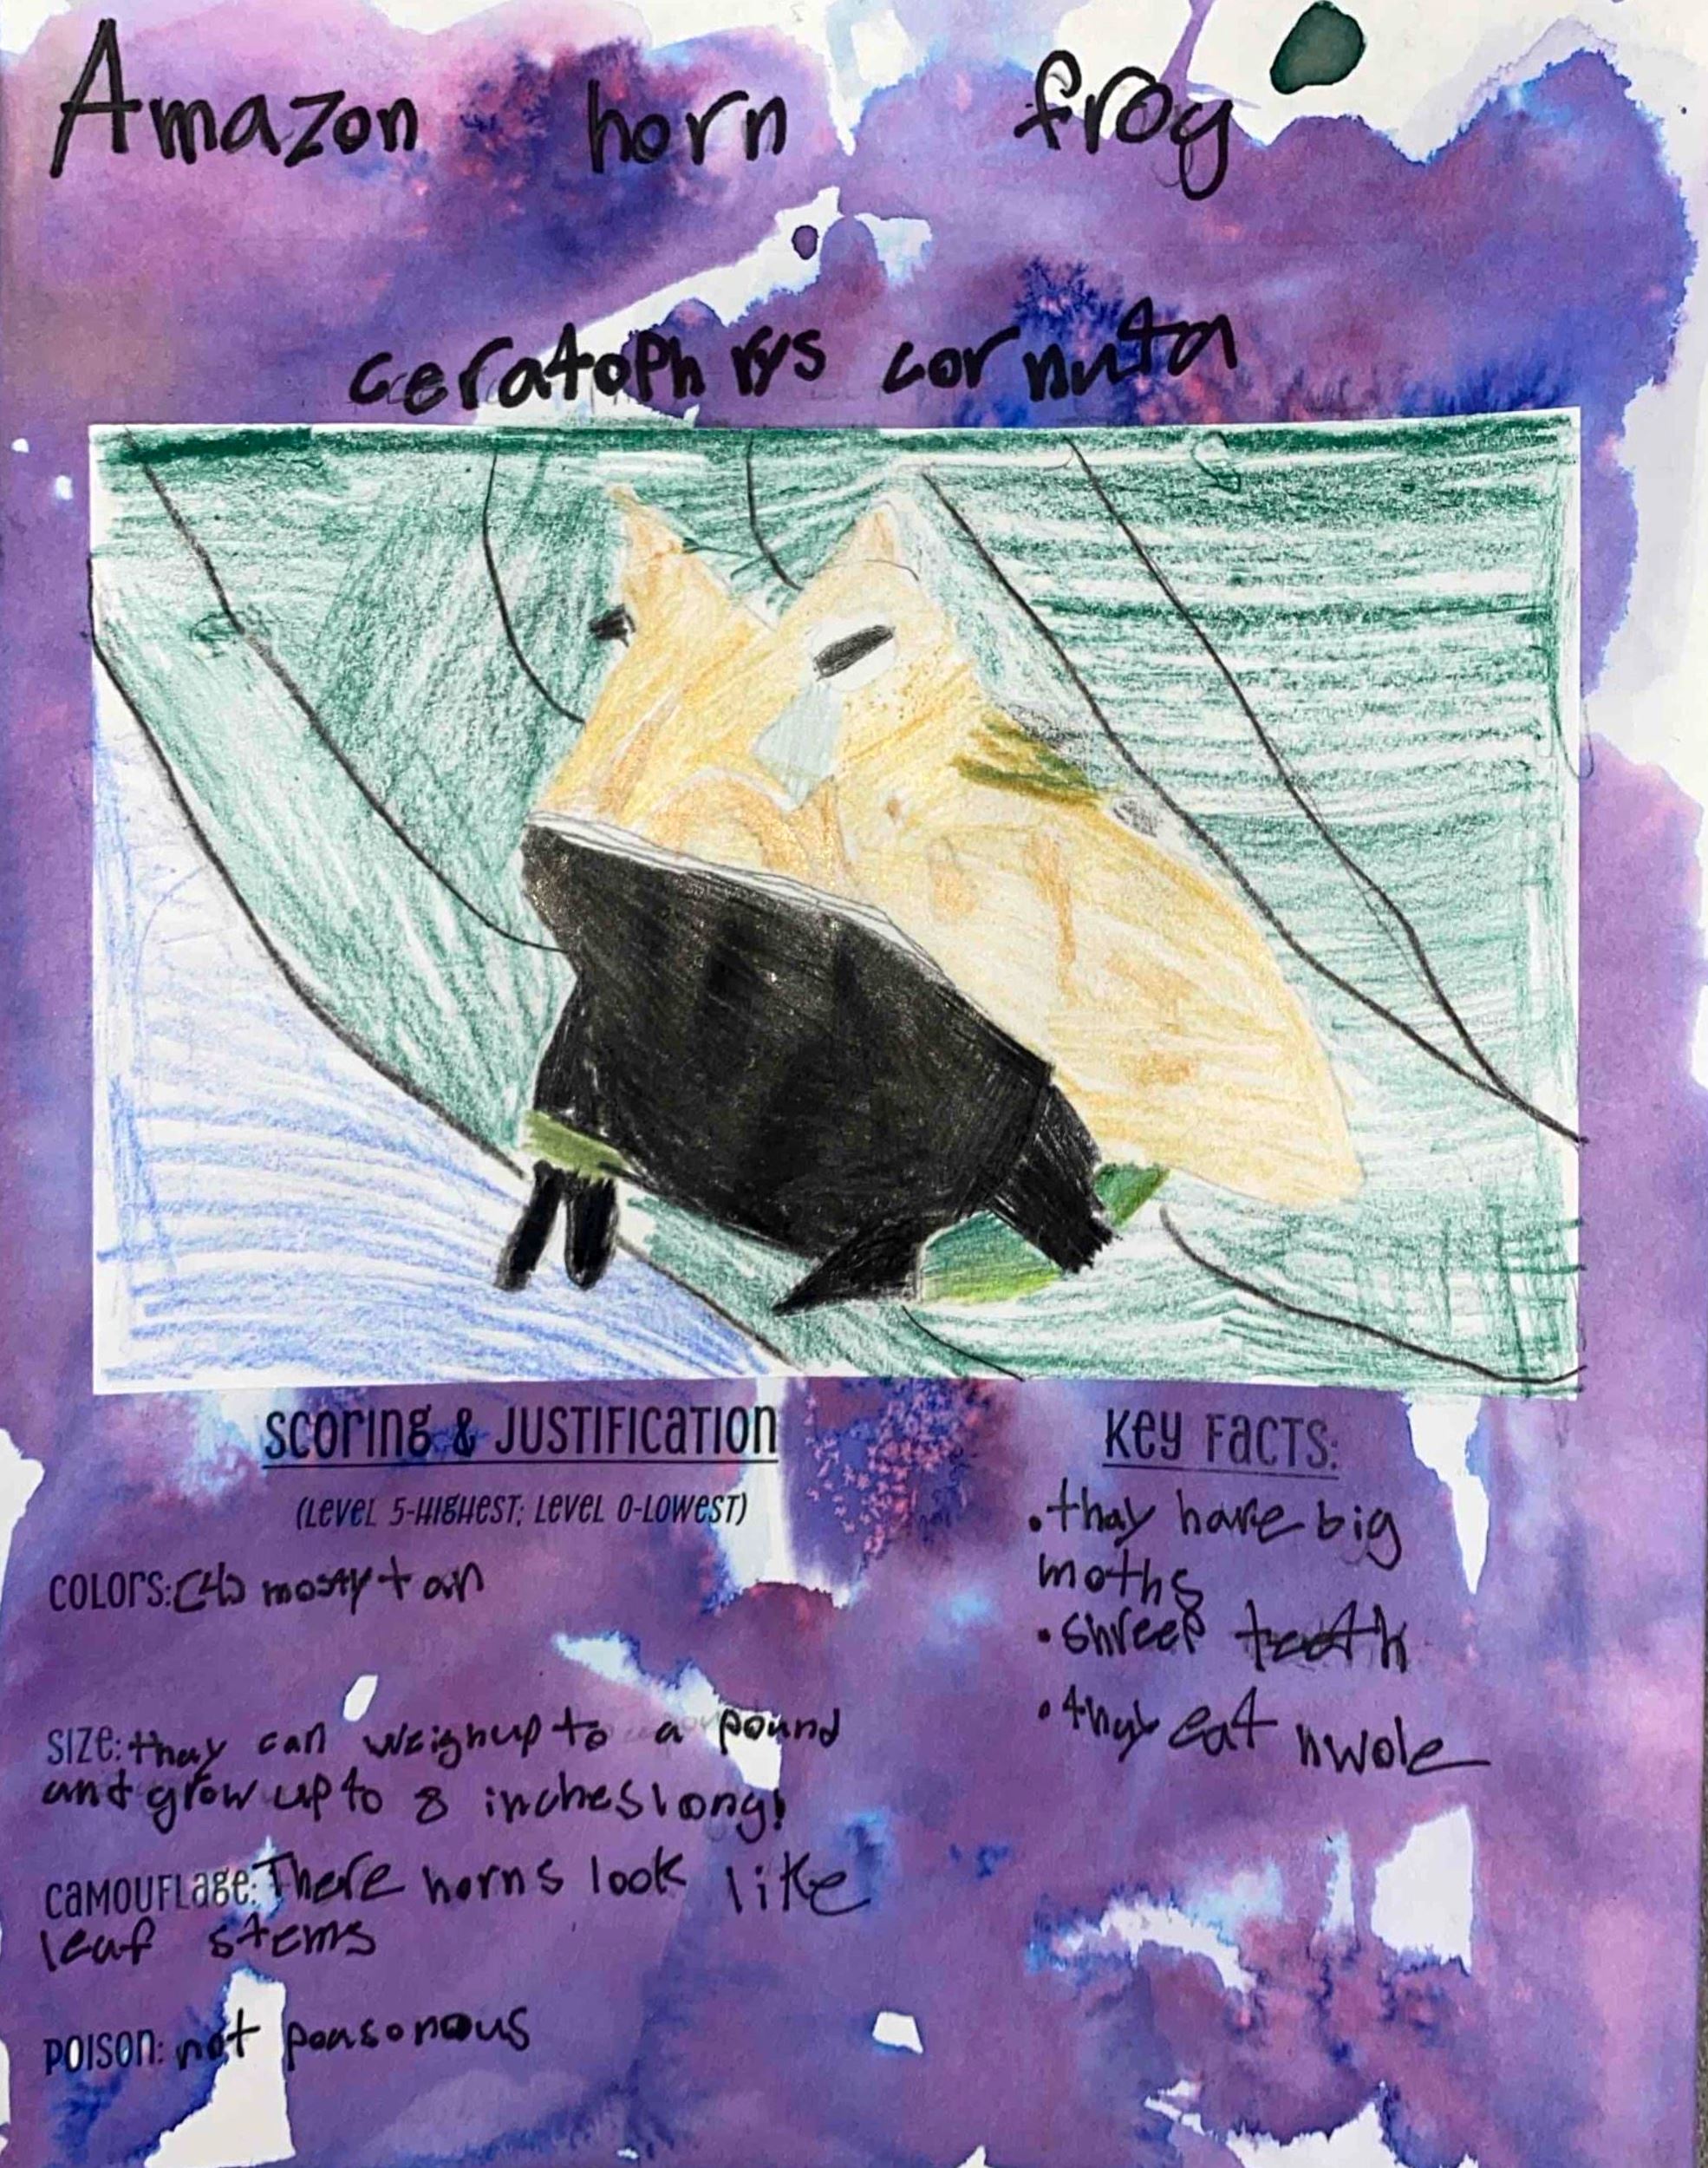 Amazon horn frog
ceratophrys cornuta
Scoring & Justification
(Level 5-Highest; Level 0-Lowest)
Colors: (4) mostly tan
Size: thay can weigh up to a pound
and grow up to 8 inches long!
Camouflage: There horns look like
leaf stems
Poison: not poasonous
Key Facts:
• thay have big
moths
• shreep teeth
• thay eat hwole